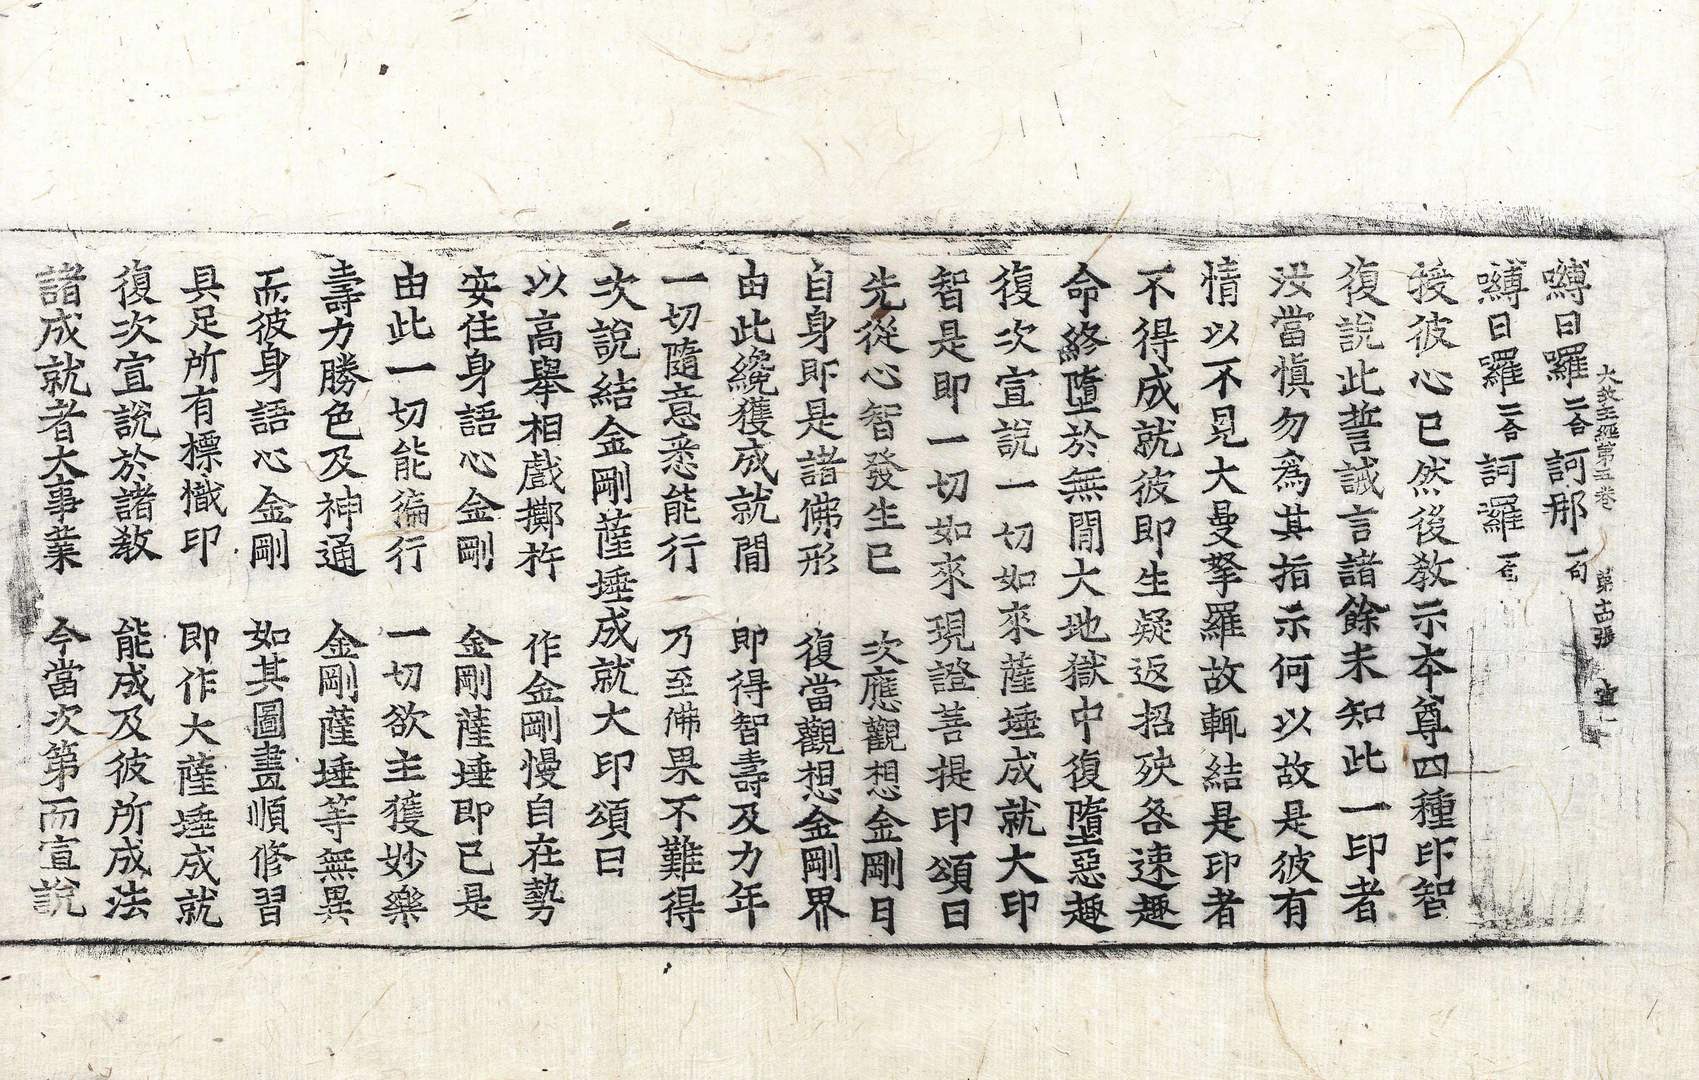 嚩日囉二合訶那一句
大教王經第五卷 第十四張
嚩日囉二合訶囉一句
授彼心已然後教示本尊四種印智
復說此誓誡言諸餘未知此一印者
汝當慎勿為其指示何以故是彼有
情以不見大曼拏羅故輒結是印者
不得成就彼即生疑返招殃咎速趣
命終墮於無間大地獄中復墮惡趣
復次宣說一切如來薩埵成就大印
智是即一切如來現證菩提印頌曰
先從心智發生已 次應觀想金剛日
自身即是諸佛形 復當觀想金剛界
由此纔獲成就間 即得智壽及力年
一切隨意悉能行 乃至佛果不難得
次說結金剛薩埵成就大印頌曰
以高舉相戲擲杵 作金剛慢自在勢
安住身語心金剛 金剛薩埵即已是
由此一切能徧行 一切欲主獲妙樂
壽力勝色及神通 金剛薩埵等無異
而彼身語心金剛 如其圖畫順修習
具足所有標幟印 即作大薩埵成就
復次宣說於諸教 能成及彼所成法
諸成就者大事業 今當次第而宣說